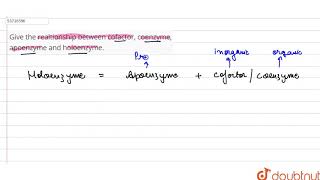 53716596
Give the realtionship between cofactor, coenzyme,
apoenzyme and holoenzyme.
Pro inorganic organic
Holoenzyme = Apoenzyme + cofactor/coenzyme
doubtnut